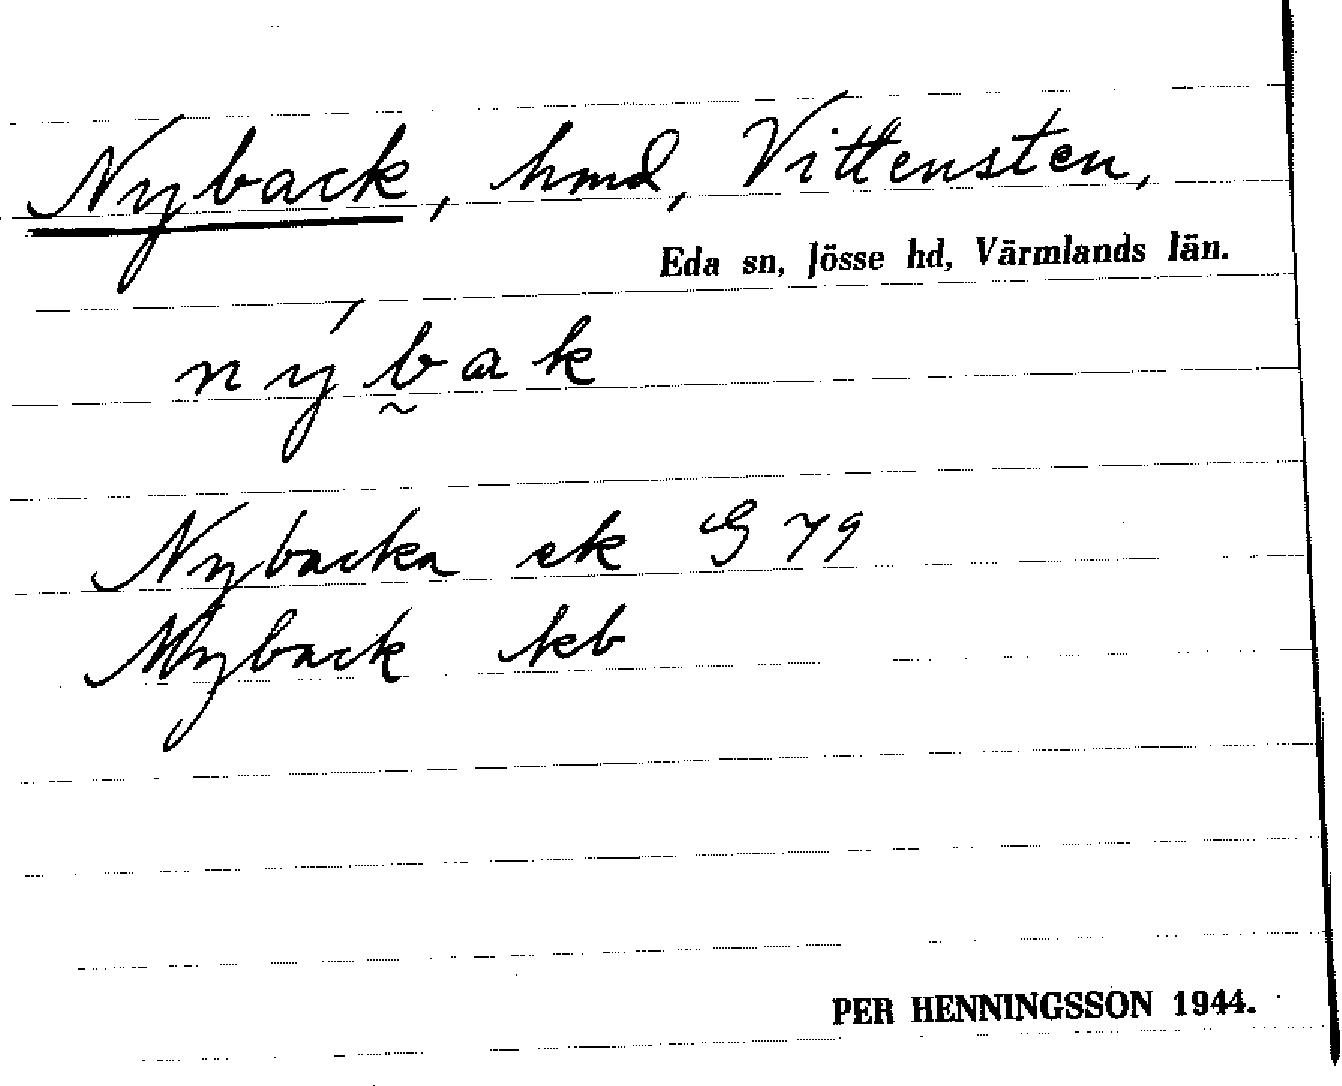 Nyback, hmd, Vittensten,
Eda sn, Jösse hd, Värmlands län.
nýb̰ak
Nybacka ek G 79
Nyback kb
PER HENNINGSSON 1944.